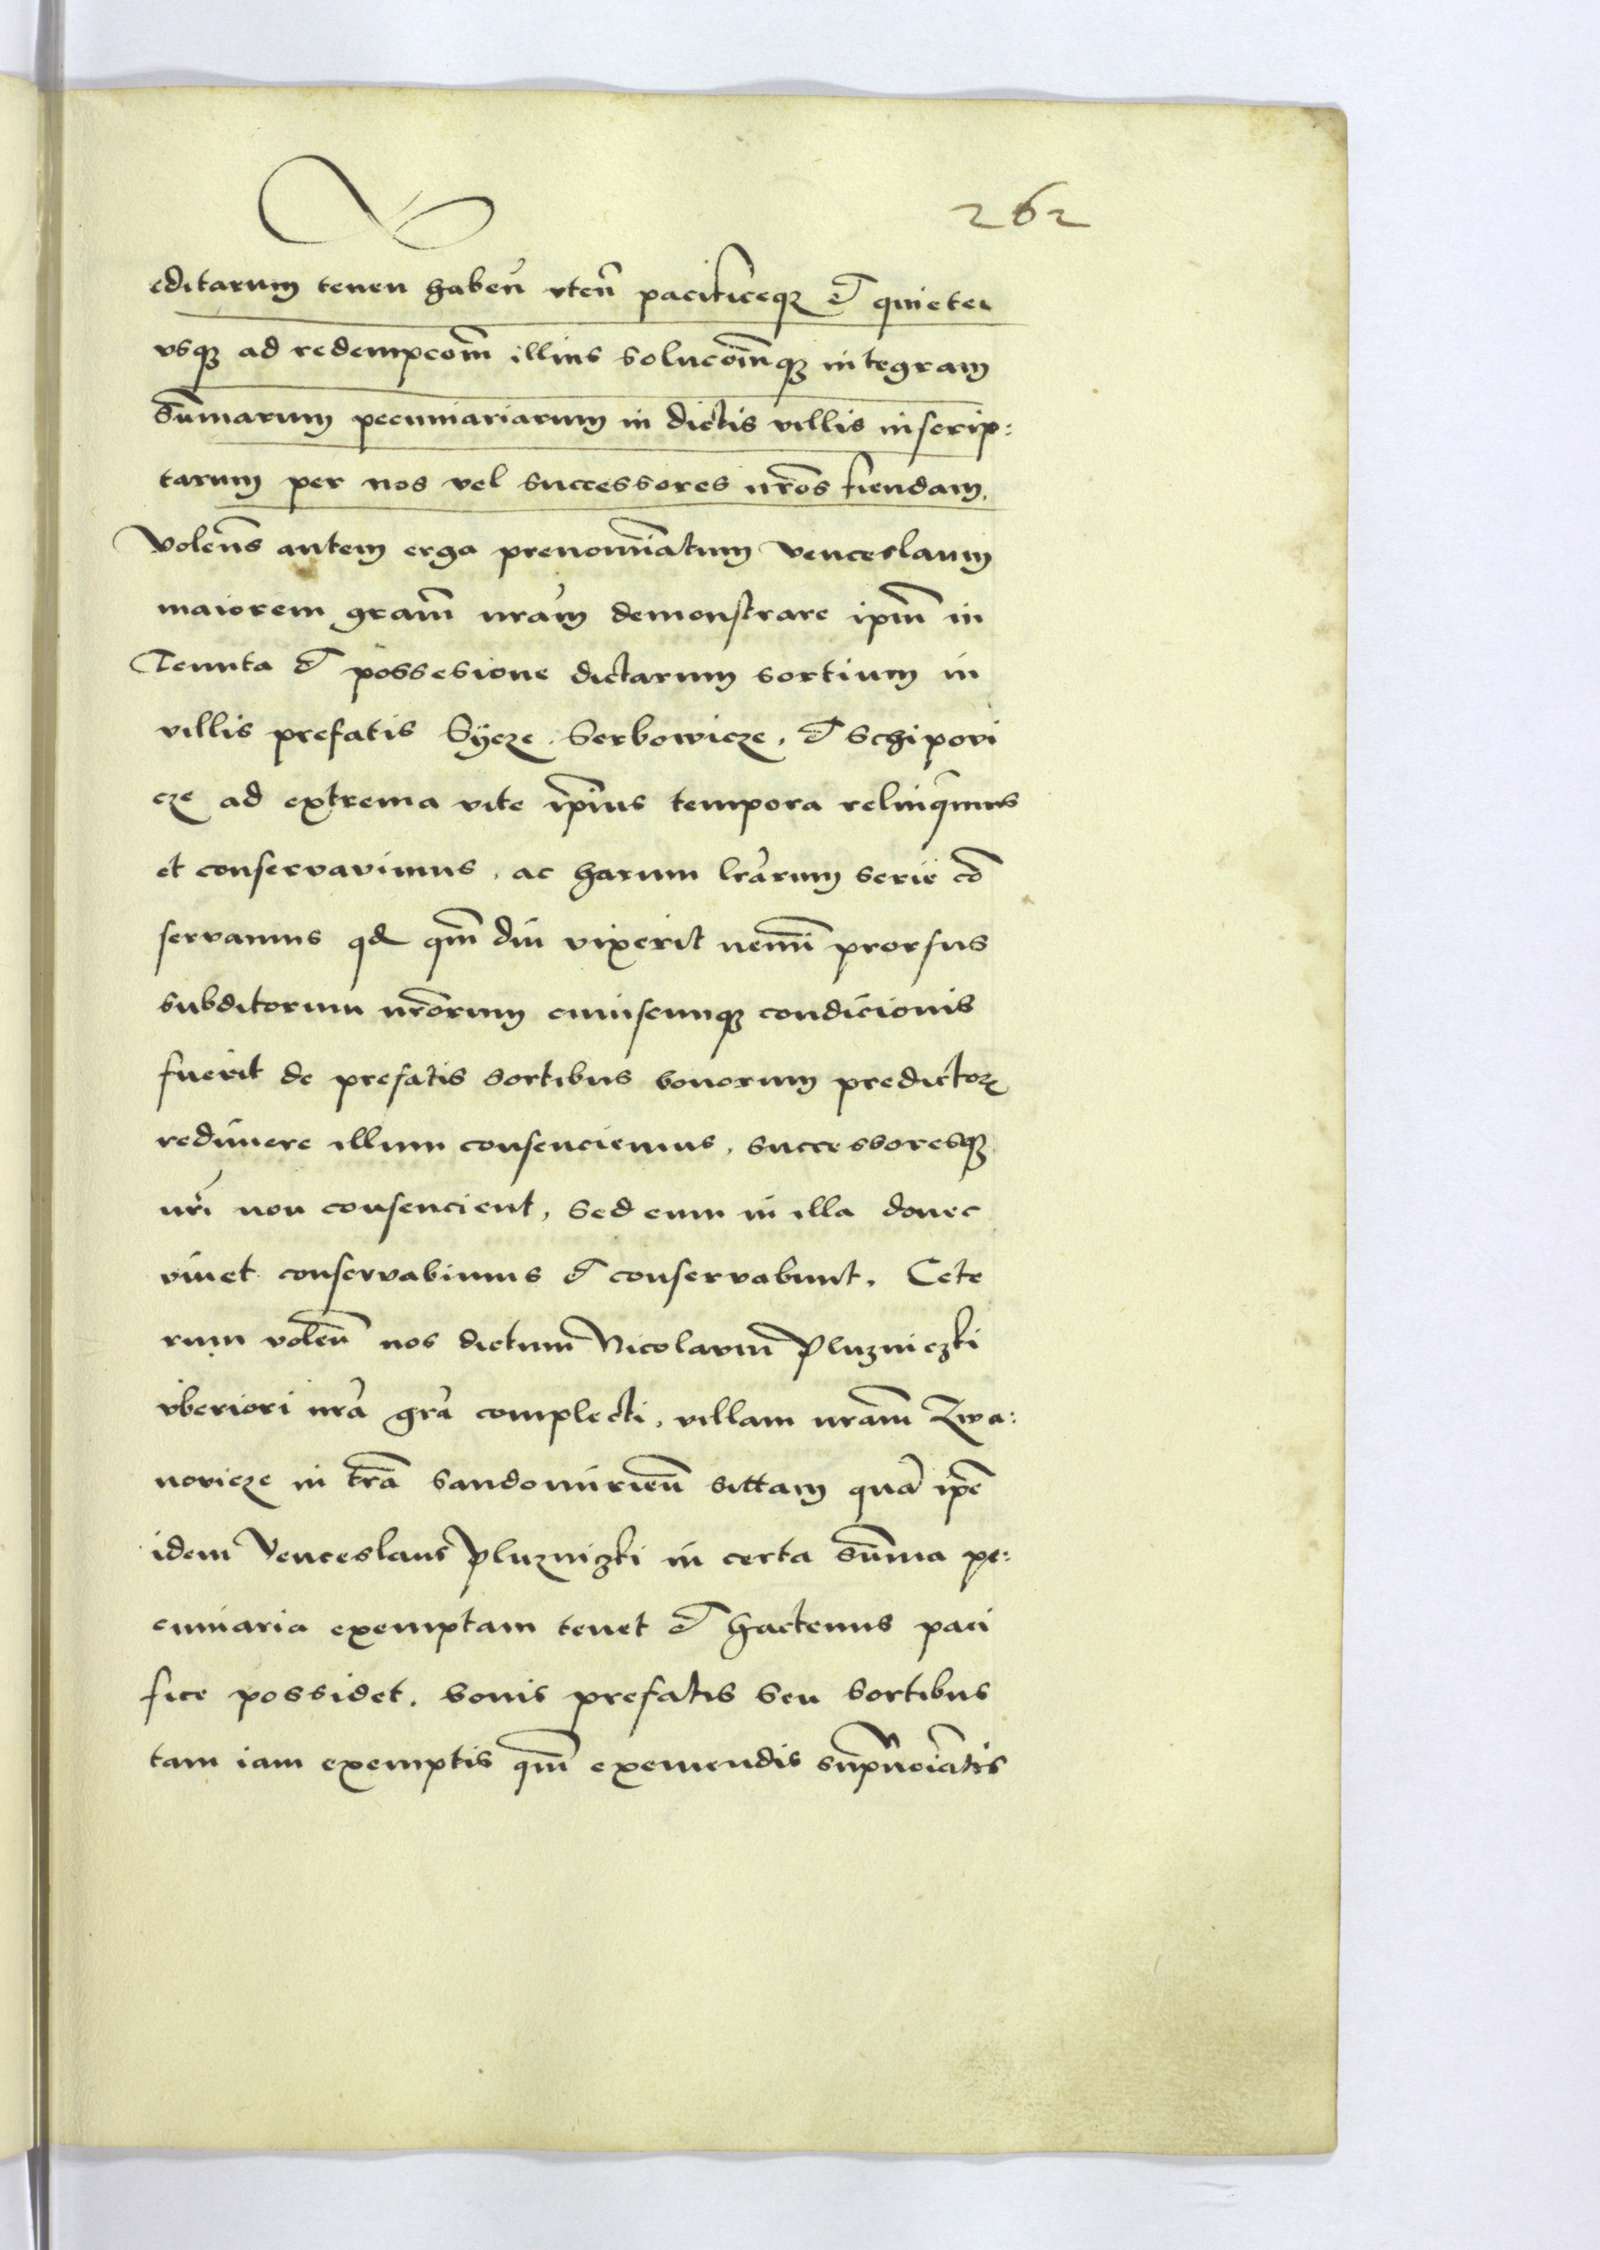 262
editarum tenen̄ haben̄ vten̄ pacificeqꝫ et quiete
vsqꝫ ad redempcōm illius solucōmqꝫ integram
sūmarum pecuniariarum in dictis villis inscrip:
tarum per nos vel successores nr̄os fiendam.
Volen̄s autem erga prenomīatum Venceslaum
maiorem grām nrām demonstrare ipm̄ in
Tenuta et possesione dictarum sortium in
villis prefatis Syeze. Serbowicze. et Schipovi
cze ad extrema vite ip̄ius tempora relinq̄mus
et conservavimus, ac harum lr̄arum serie cō
servamus qd qm̄ diu vixerit nemī prorsus
subditorum nr̄orum cuiuscunqꝫ condicionis
fuerit de prefatis sortibus bonorum predictoꝝ
redimere illum consenciemus, successoresqꝫ
nr̄i non consencient, sed eum in illa donec
vivet conservabimus et conservabunt. Cete
rum volen̄ nos dictum Nicolaum Pluzniczki
vberiori nr̄a gr̄a complecti, villam nrām Zwa:
novicze in tr̄a Sandomirien̄ sittam quā ip̄e
idem Venceslaus Pluznizki in certa sūma pe:
cuniaria exemptam tenet et hactenus paci
fice possidet. bonis prefatis seu sortibus
tam iam exemptis qm̄ exemendis